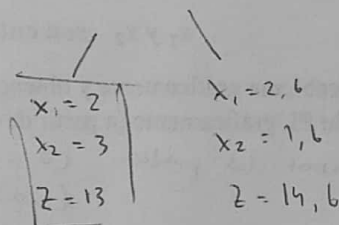 x₁ = 2
x₂ = 3
Z = 13
x₁ = 2,6
x₂ = 1,6
Z = 14,6